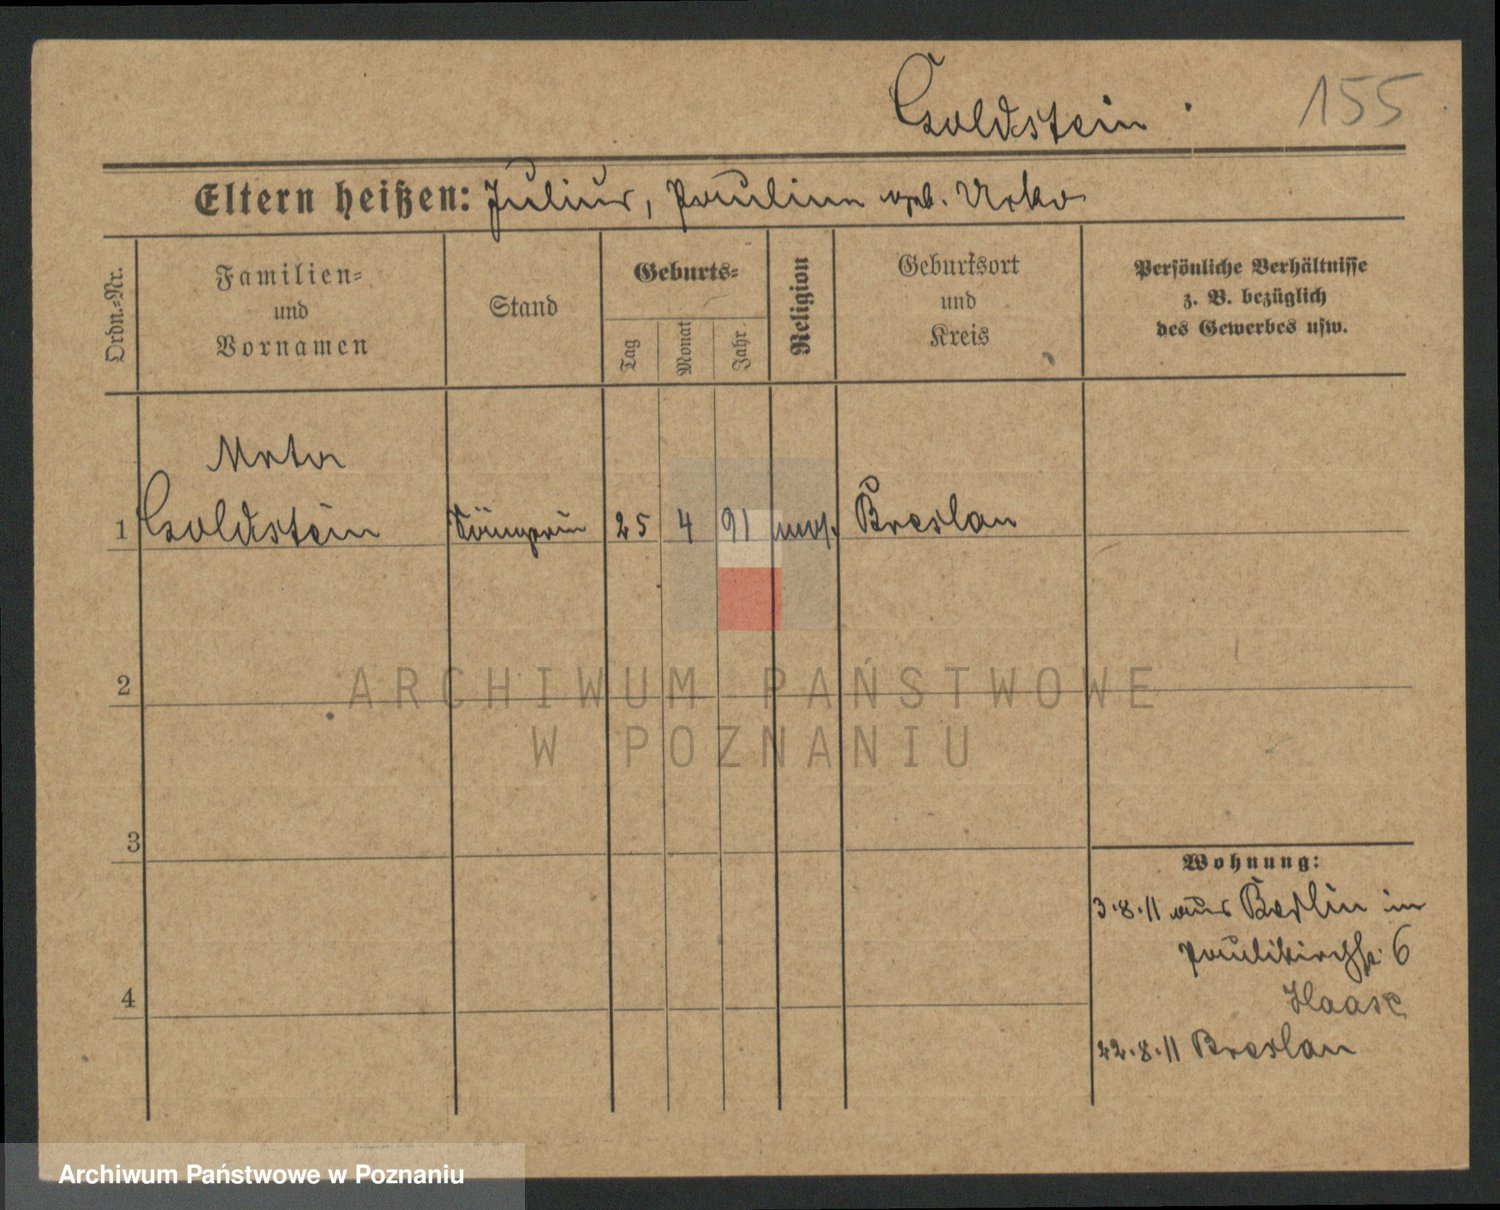 Goldstein
155
Eltern heißen: Julius, Pauline geb. Urko
Ordn.-Nr.
Familien-
und
Vornamen
Stand
Geburts-
Tag
Monat
Jahr.
Religion
Geburtsort
und
Kreis
Persönliche Verhältnisse
z. B. bezüglich
des Gewerbes usw.
Meta
1 Goldstein Sängerin 25 4 91 mos. Breslau
2
3
4
Wohnung:
3.8.11 aus Berlin in
Paulikirchstr. 6
Haase
22.8.11 Breslau
ARCHIWUM PAŃSTWOWE
W POZNANIU
Archiwum Państwowe w Poznaniu